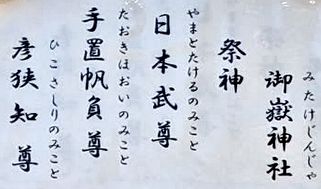 みたけじんじゃ
御嶽神社
祭神
やまとたけるのみこと
日本武尊
たおきほおいのみこと
手置帆負尊
ひこさしりのみこと
彦狭知尊